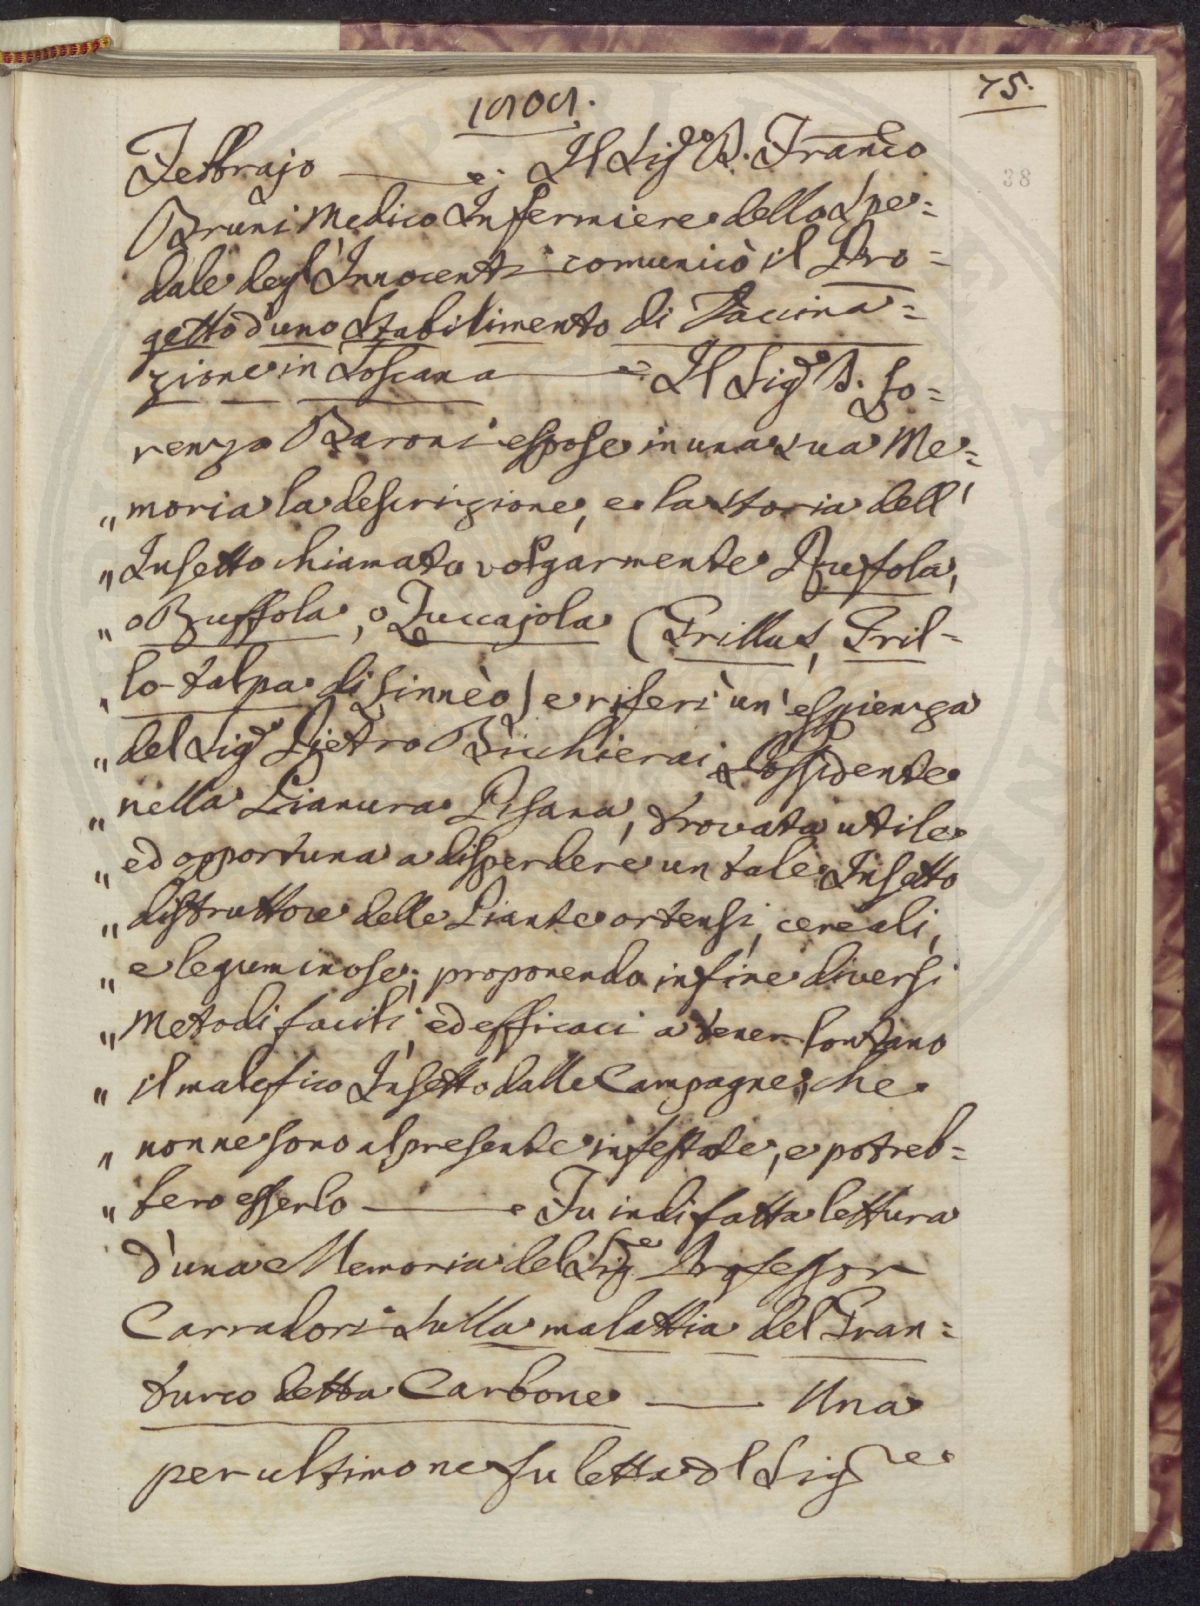 1809.
75.
38
Febbrajo ——— e. Il Sig.e D. Fran.co
Bruni Medico Infermiere dello Spe=
dale degl'Innocenti comunicò il Pro=
getto d'uno Stabilimento di Vaccina=
zione in Toscana ——— Il Sig.e D. Lo=
renzo Baroni espose in una sua Me=
„ moria la descrizione, e la storia dell'
„ Insetto chiamato volgarmente Rufola,
„ o Zuffola, o Zuccajola (Grillus, Gril-
„ lo-talpa di Linnèo) e riferì un' esperienza
„ del Sig.e Pietro Bicchierai Possidente
„ nella Pianura Pisana, trovata utile
„ ed opportuna a disperdere un tale Insetto
„ distruttore delle Piante ortensi, cereali,
„ e leguminose; proponendo infine diversi
„ Metodi facili, ed efficaci a tener lontano
„ il malefico Insetto dalle Campagne, che
„ non ne sono al presente infestate, e potreb=
„ bero esserlo ——— Fu indi fatta lettura
d'una Memoria del Sig.e Professor
Carradori sulla malattia del Gran=
turco detta Carbone ——— Una
per ultimo ne fu letta dl Sig.re